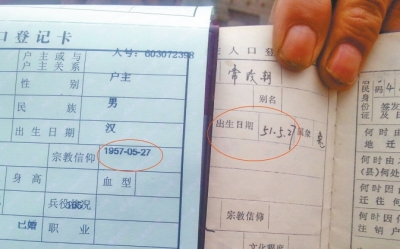 口登记卡
人号: 603072398
户主或与
户主关系
户主
性别
男
民族
汉
出生日期
1957-05-27
宗教信仰
身高
血型
兵役状况
已婚
职业
人口登记
别名
出生日期
51.5.27
属兔
宗教信仰
文化程度
居民
身份
证件
签发
何时由
地迁
何时由
(县)何处
何时因
迁往何
何时因
注销户